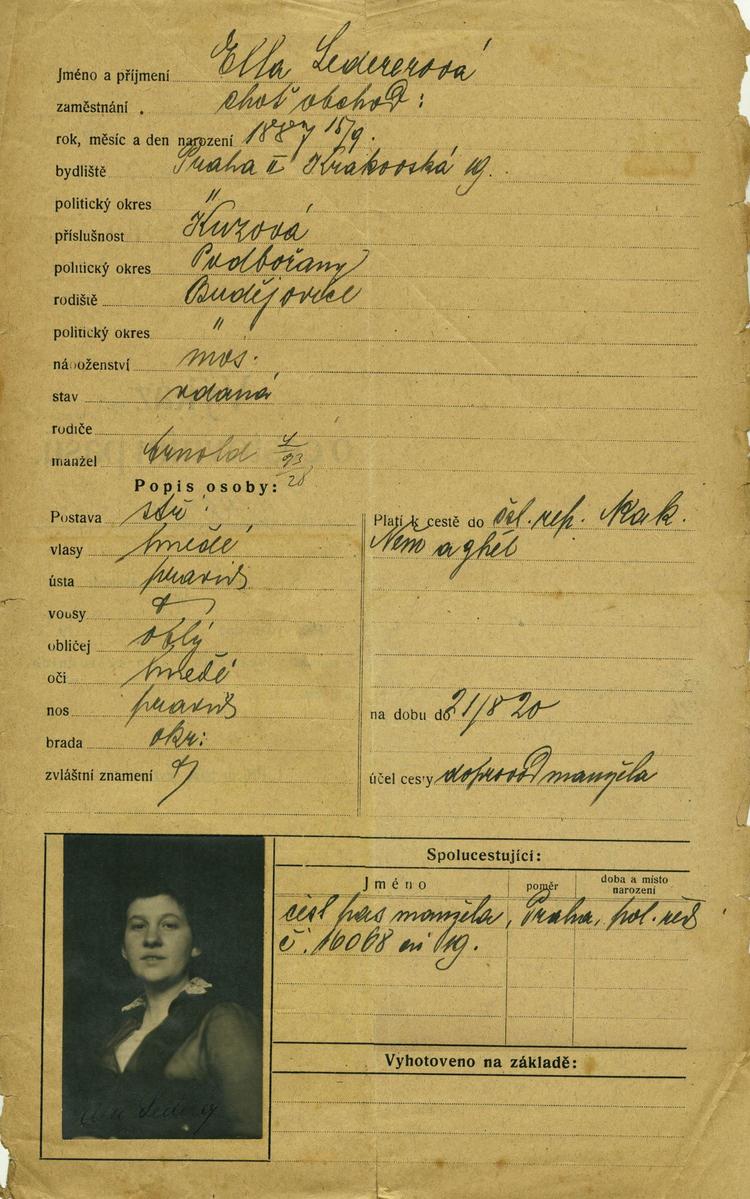 Jméno a příjmení Ella Ledererová
zaměstnání . choť obchod:
rok, měsíc a den narození 1887 15/9.
bydliště Praha II Krakovská 19.
politický okres "
příslušnost
politický okres Podbořany
rodiště Budějovice
politický okres "
náboženství mos.
stav vdaná
rodiče
manžel Arnold
Popis osoby:
Postava stř.
vlasy hnědé
ústa pravid
vousy
obličej oblý
oči hnědé
nos pravid
brada okr:
zvláštní znamení
Platí k cestě do čsl. rep. Rak.
Něm a
na dobu do 21/8 20
účel cesty doprovod manžela
Spolucestující:
Jméno
poměr
doba a místo
narození
cest pas manžela, Praha, pol. řed
č. 16068 19.
Vyhotoveno na základě: